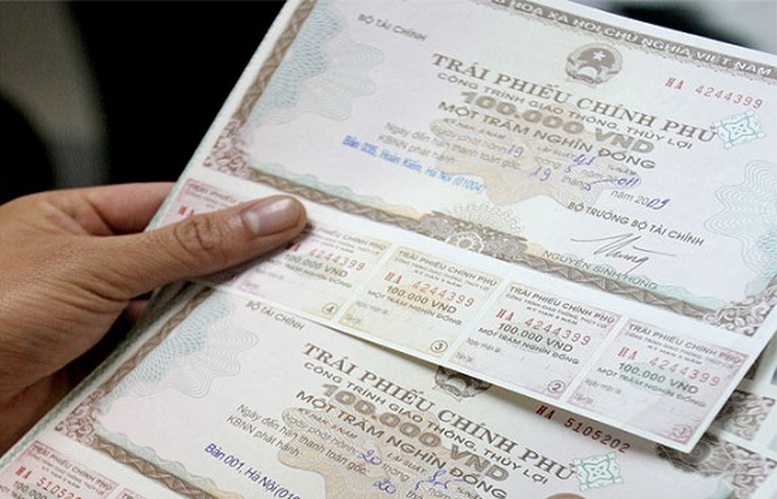 HÒA XÃ HỘI CHỦ NGHĨA VIỆT NAM
BỘ TÀI CHÍNH
HA 4244399
TRÁI PHIẾU CHÍNH PHỦ
CÔNG TRÌNH GIAO THÔNG, THỦY LỢI
100.000 VND
MỘT TRĂM NGHÌN ĐỒNG
Ngày phát hành 19
Ngày đến hạn thanh toán gốc: 19 tháng 5 năm 2009
KBNN phát hành:
Bản 035, Hoàn Kiếm, Hà Nội (01004)
BỘ TRƯỞNG BỘ TÀI CHÍNH
NGUYỄN SINH HÙNG
HA 4244399
100.000 VND
MỘT TRĂM NGHÌN ĐỒNG
4
TRÁI PHIẾU CHÍNH PHỦ
HA 4244399
100.000 VND
MỘT TRĂM NGHÌN ĐỒNG
3
TRÁI PHIẾU CHÍNH PHỦ
CÔNG TRÌNH GIAO THÔNG, THỦY LỢI
HA 4244399
100.000 VND
MỘT TRĂM NGHÌN ĐỒNG
2
TRÁI PHIẾU CHÍNH PHỦ
CÔNG TRÌNH GIAO THÔNG, THỦY LỢI
HA 4244399
100.000 VND
MỘT TRĂM NGHÌN ĐỒNG
1
BỘ TÀI CHÍNH
HA 5105202
TRÁI PHIẾU CHÍNH PHỦ
CÔNG TRÌNH GIAO THÔNG, THỦY LỢI
100.000 VND
MỘT TRĂM NGHÌN ĐỒNG
Ngày phát hành 20
Ngày đến hạn thanh toán gốc: 20
KBNN phát hành:
Bản 001, Hà Nội
TRÁI PHIẾU CHÍNH PHỦ